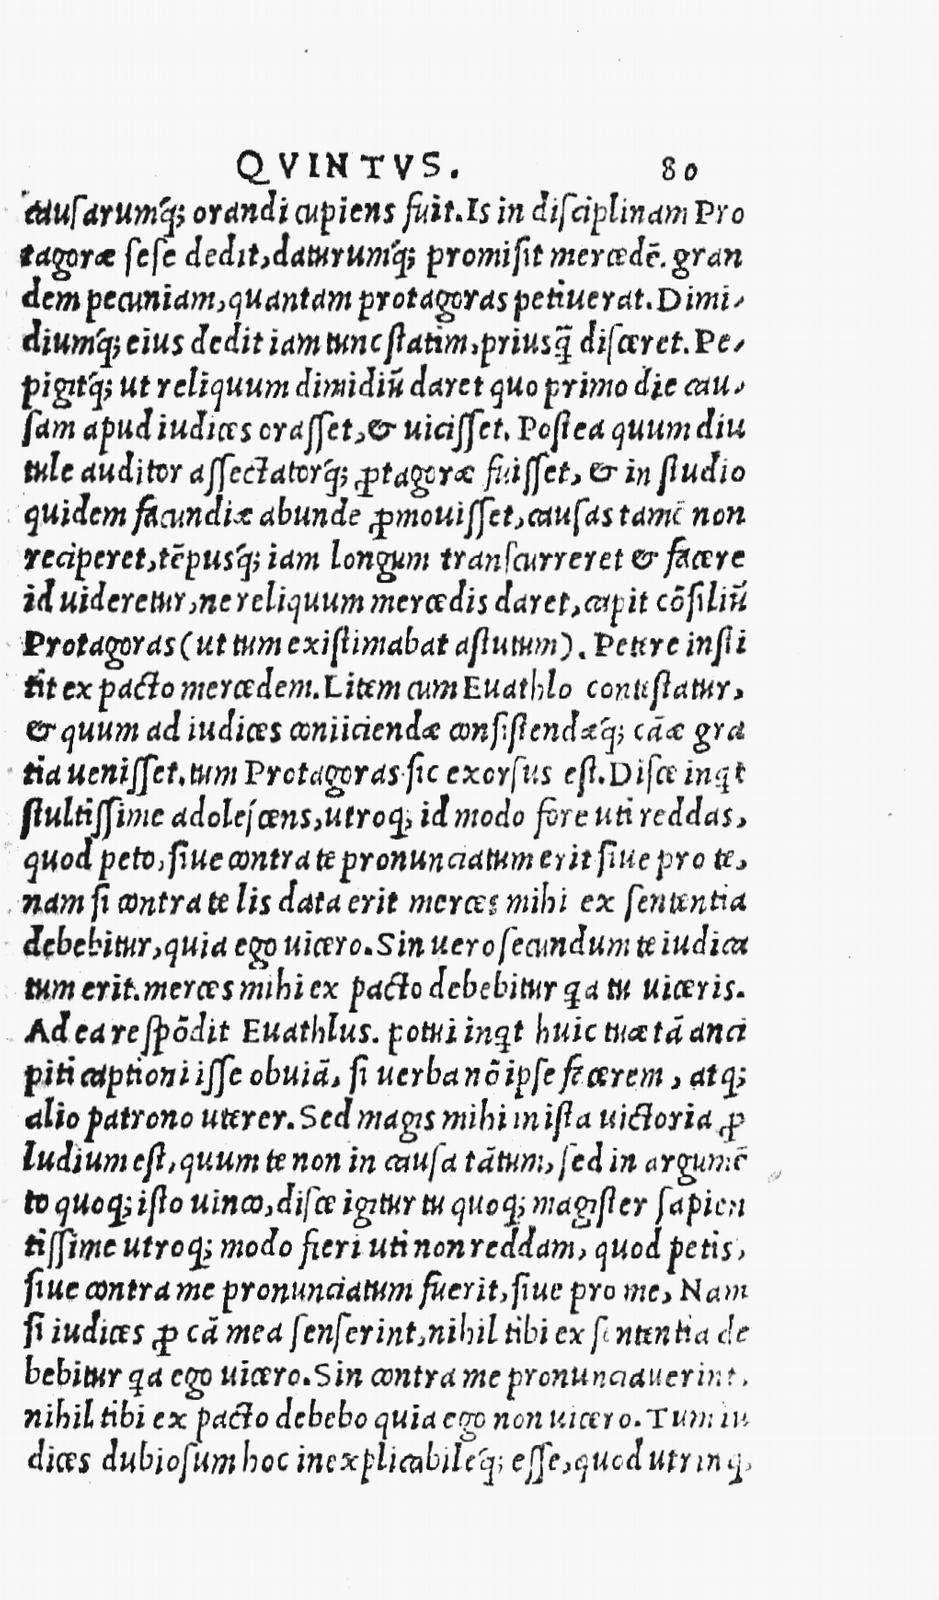 QVINTVS. 80
cauſarumq́; orandi cupiens fuit. Is in diſciplinam Pro
tagoræ ſeſe dedit, daturumq́; promiſit mercedē. gran
dem pecuniam, quantam protagoras petiuerat. Dimi-
diumq́; eius dedit iam tunc ſtatim, priusq̃ diſceret. Pe-
pigitq́; ut reliquum dimidiũ daret quo primo die cau-
ſam apud iudices oraſſet, & uiciſſet. Poſtea quum diu
tule auditor aſſectatorq́; ꝓtagoræ fuiſſet, & in ſtudio
quidem facundiæ abunde ꝓmouiſſet, cauſas tamē non
reciperet, tẽpusq́; iam longum tranſcurreret & facere
id uideretur, ne reliquum mercedis daret, capit cõſiliũ
Protagoras (ut tum exiſtimabat aſtutum). Petere inſti
tit ex pacto mercedem. Litem cum Euathlo conteſtatur,
& quum ad iudices coniiciendæ conſiſtendæq́; cãæ gra
tia ueniſſet. tum Protagoras ſic exorſus eſt. Diſce inqt
ſtultiſſime adoleſcens, utroq; id modo fore uti reddas,
quod peto, ſiue contra te pronunciatum erit ſiue pro te,
nam ſi contra te lis data erit merces mihi ex ſententia
debebitur, quia ego uicero. Sin uero ſecundum te iudica
tum erit. merces mihi ex pacto debebitur qa tu uiceris.
Ad ea reſpõdit Euathlus. potui inqt huic tuæ tã anci
piti captioni iſſe obuiã, ſi uerba nõ ipſe facerem, atq;
alio patrono uterer. Sed magis mihi in iſta uictoria ꝓ
ludium eſt, quum te non in cauſa tãtum, ſed in argumẽ
to quoq; iſto uinco, diſce igitur tu quoq; magiſter ſapien
tiſſime utroq; modo fieri uti non reddam, quod petis,
ſiue contra me pronunciatum fuerit, ſiue pro me, Nam
ſi iudices ꝓ cã mea ſenſerint, nihil tibi ex ſententia de
bebitur qa ego uicero. Sin contra me pronunciauerint,
nihil tibi ex pacto debebo quia ego non uicero. Tum iu
dices dubioſum hoc inexplicabileq́; eſſe, quod utrinq,